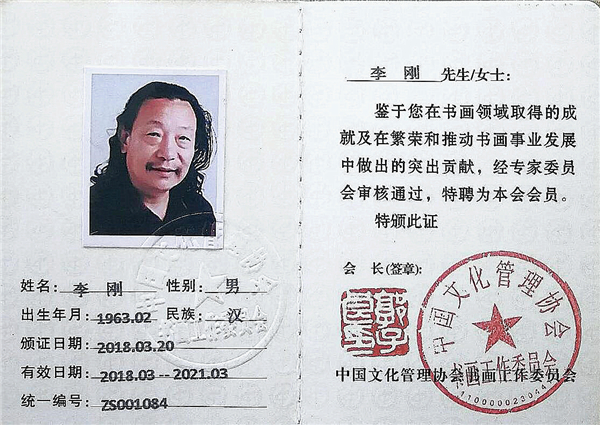 姓名：李 刚 性别：男
出生年月：1963.02 民族：汉
颁证日期：2018.03.20
有效日期：2018.03--2021.03
统一编号：ZS001084
李 刚 先生/女士：
鉴于您在书画领域取得的成
就及在繁荣和推动书画事业发展
中做出的突出贡献，经专家委员
会审核通过，特聘为本会会员。
特颁此证
会 长(签章)：
中国文化管理协会
书画工作委员会
中国文化管理协会书画工作委员会